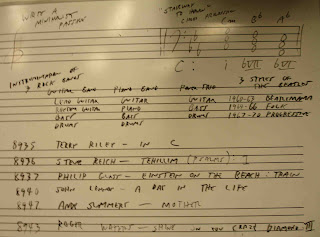 WRITE A
MINIMALIST
PASSAGE
"STAIRWAY TO HEAVEN"
CHORD PROGRESSION
Cmin Bb Ab
C: i bVII bVI
INSTRUMENTATION OF
3 ROCK BANDS
3 STYLES OF
THE BEATLES
GUITAR BAND PIANO BAND POWER TRIO
LEAD GUITAR GUITAR GUITAR 1960-63 BEATLEMANIA
RHYTHM GUITAR PIANO BASS 1964-66 FOLK
BASS BASS DRUMS 1967-70 PROGRESSIVE
DRUMS DRUMS
8935 TERRY RILEY - IN C
8936 STEVE REICH - TEHILLIM (PSALMS): I
8937 PHILIP GLASS - EINSTEIN ON THE BEACH: TRAIN
8940 JOHN LENNON - A DAY IN THE LIFE
8942 ANDY SUMMERS - MOTHER
8943 ROGER WATERS - SHINE ON YOU CRAZY DIAMOND III